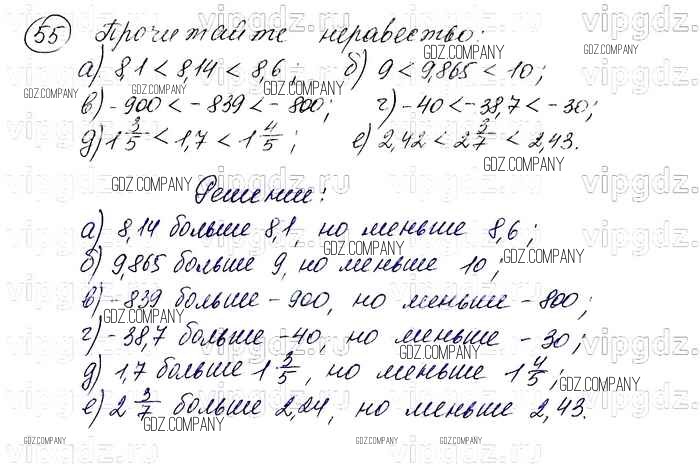 55 Прочитайте неравество:
а) 8,1 < 8,14 < 8,6; б) 9 < 9,865 < 10;
в) -900 < -839 < -800; г) -40 < -38,7 < -30;
д) 1 3/5 < 1,7 < 1 4/5; е) 2,42 < 2 3/7 < 2,43.
Решение:
а) 8,14 больше 8,1, но меньше 8,6;
б) 9,865 больше 9, но меньше 10;
в) -839 больше -900, но меньше -800;
г) -38,7 больше -40, но меньше -30;
д) 1,7 больше 1 3/5, но меньше 1 4/5;
е) 2 3/7 больше 2,24, но меньше 2,43.
GDZ.COMPANY
vipgdz.ru